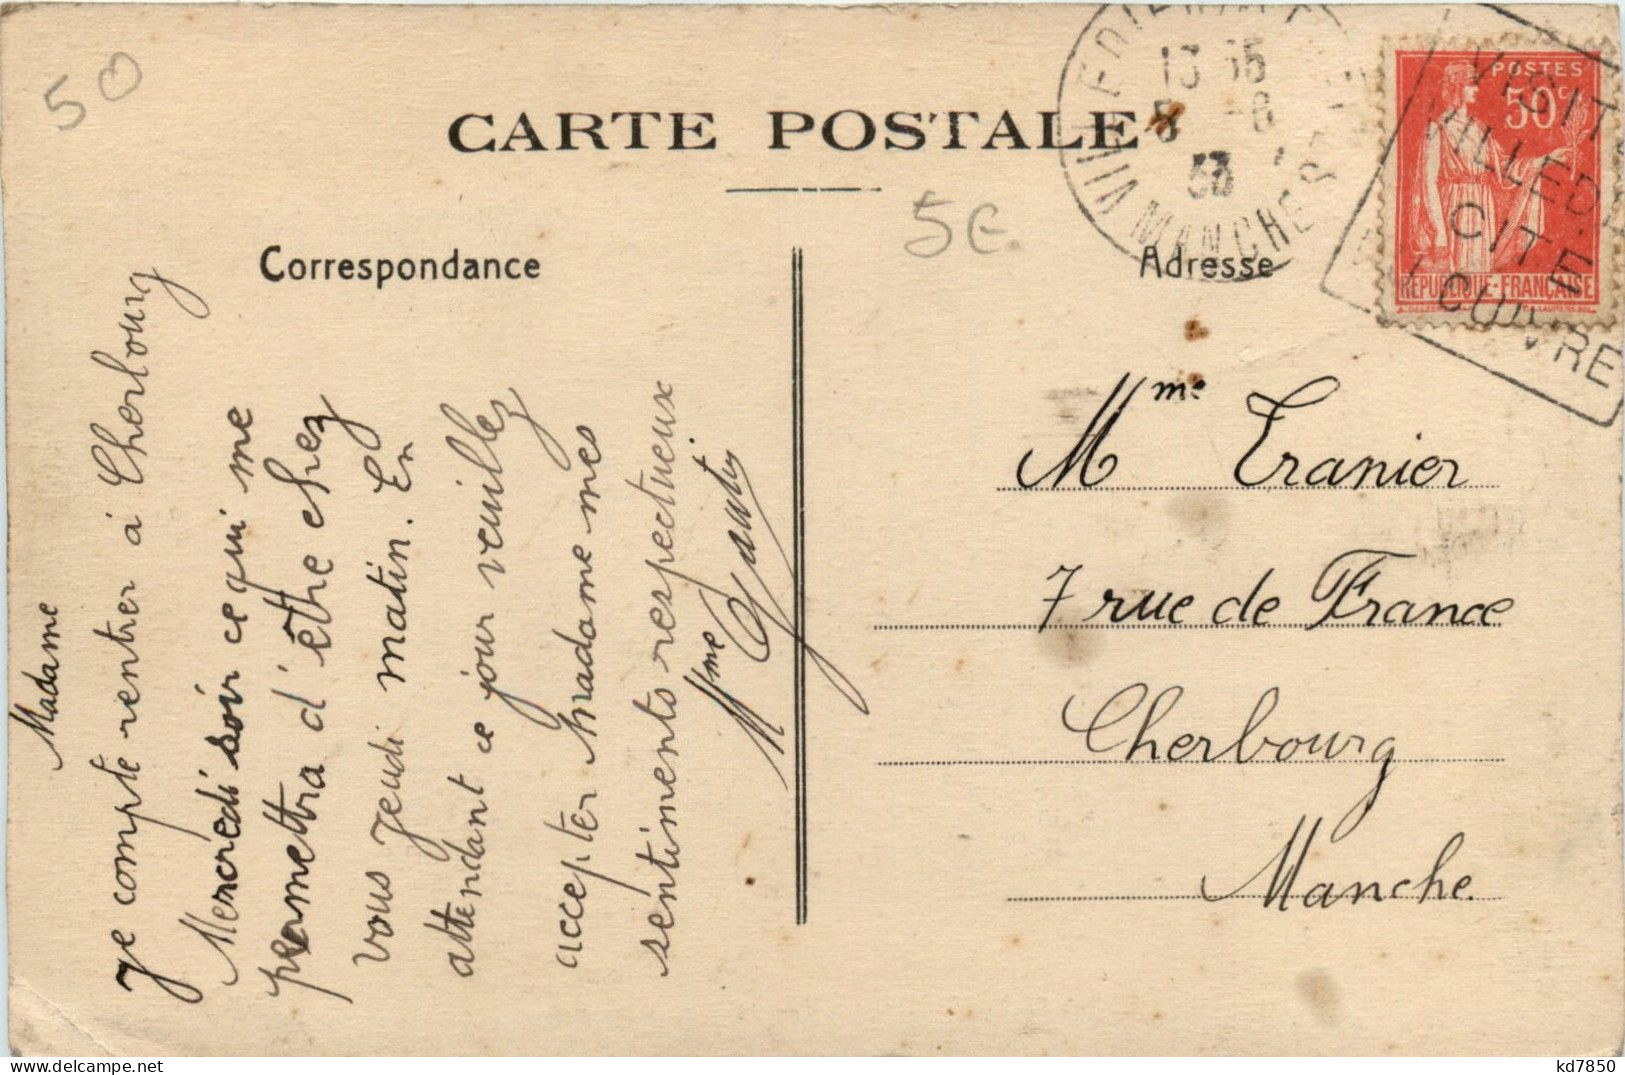 50
CARTE POSTALE
5€.
Correspondance
Adresse
13 35
8 -8
33
MANCHE
POSTES
50c
REPUBLIQUE-FRANÇAISE
VISIT
VILLEDI
CITE
CUIVRE
Madame
Je compte rentrer à Cherbourg
Mercredi soir ce qui me
permettra d'être chez
vous jeudi matin. En
attendant ce jour veuillez
accepter Madame mes
sentiments respectueux
Mme Gautier
Mme Tranier
7 rue de France
Cherbourg
Manche.
kd7850